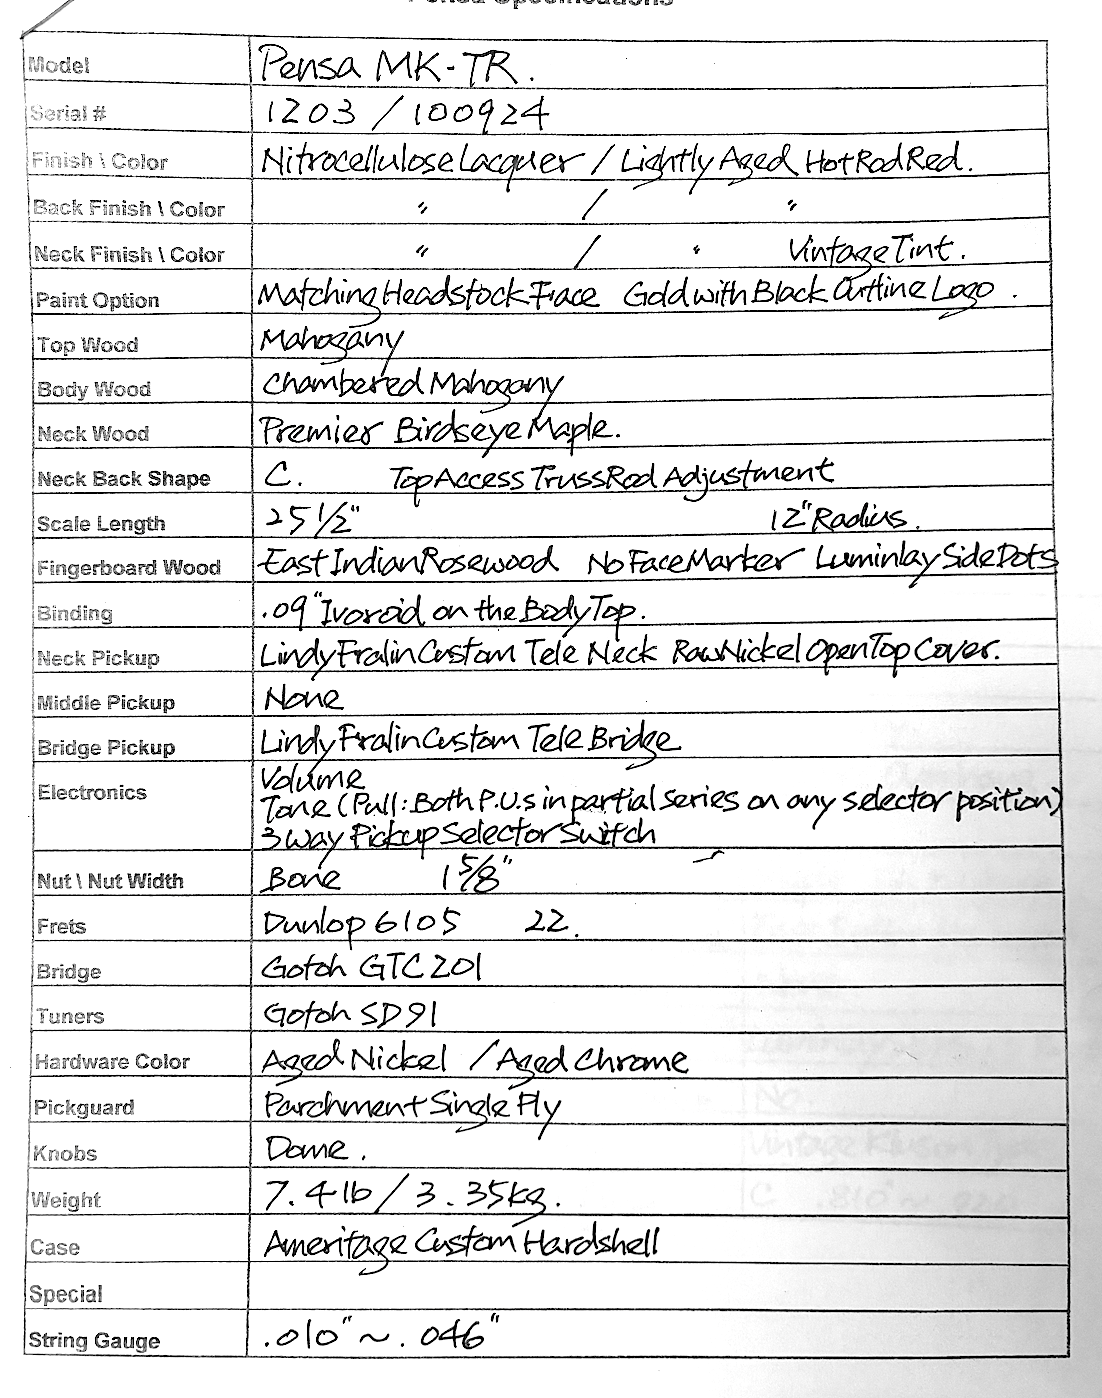 Pensa Specifications
Model Pensa MK-TR.
Serial # 1203 / 100924
Finish \ Color Nitrocellulose Lacquer / Lightly Aged Hot Rod Red.
Back Finish \ Color 〃 / 〃
Neck Finish \ Color 〃 / 〃 Vintage Tint.
Paint Option Matching Headstock Face Gold with Black Outline Logo.
Top Wood Mahogany
Body Wood Chambered Mahogany
Neck Wood Premier Birdseye Maple.
Neck Back Shape C. Top Access Truss Rod Adjustment
Scale Length 25 1/2" 12" Radius.
Fingerboard Wood East Indian Rosewood No Face Marker Luminlay Side Dots
Binding .09" Ivoroid on the Body Top.
Neck Pickup Lindy Fralin Custom Tele Neck Raw Nickel Open Top Cover.
Middle Pickup None
Bridge Pickup Lindy Fralin Custom Tele Bridge
Electronics Volume
Tone (Pull: Both P.U.s in partial series on any selector position)
3 Way Pickup Selector Switch
Nut \ Nut Width Bone 1 5/8"
Frets Dunlop 6105 22.
Bridge Gotoh GTC 201
Tuners Gotoh SD91
Hardware Color Aged Nickel / Aged Chrome
Pickguard Parchment Single Ply
Knobs Dome.
Weight 7.4 lb / 3.35kg.
Case Ameritage Custom Hardshell
Special
String Gauge .010" ~ .046"